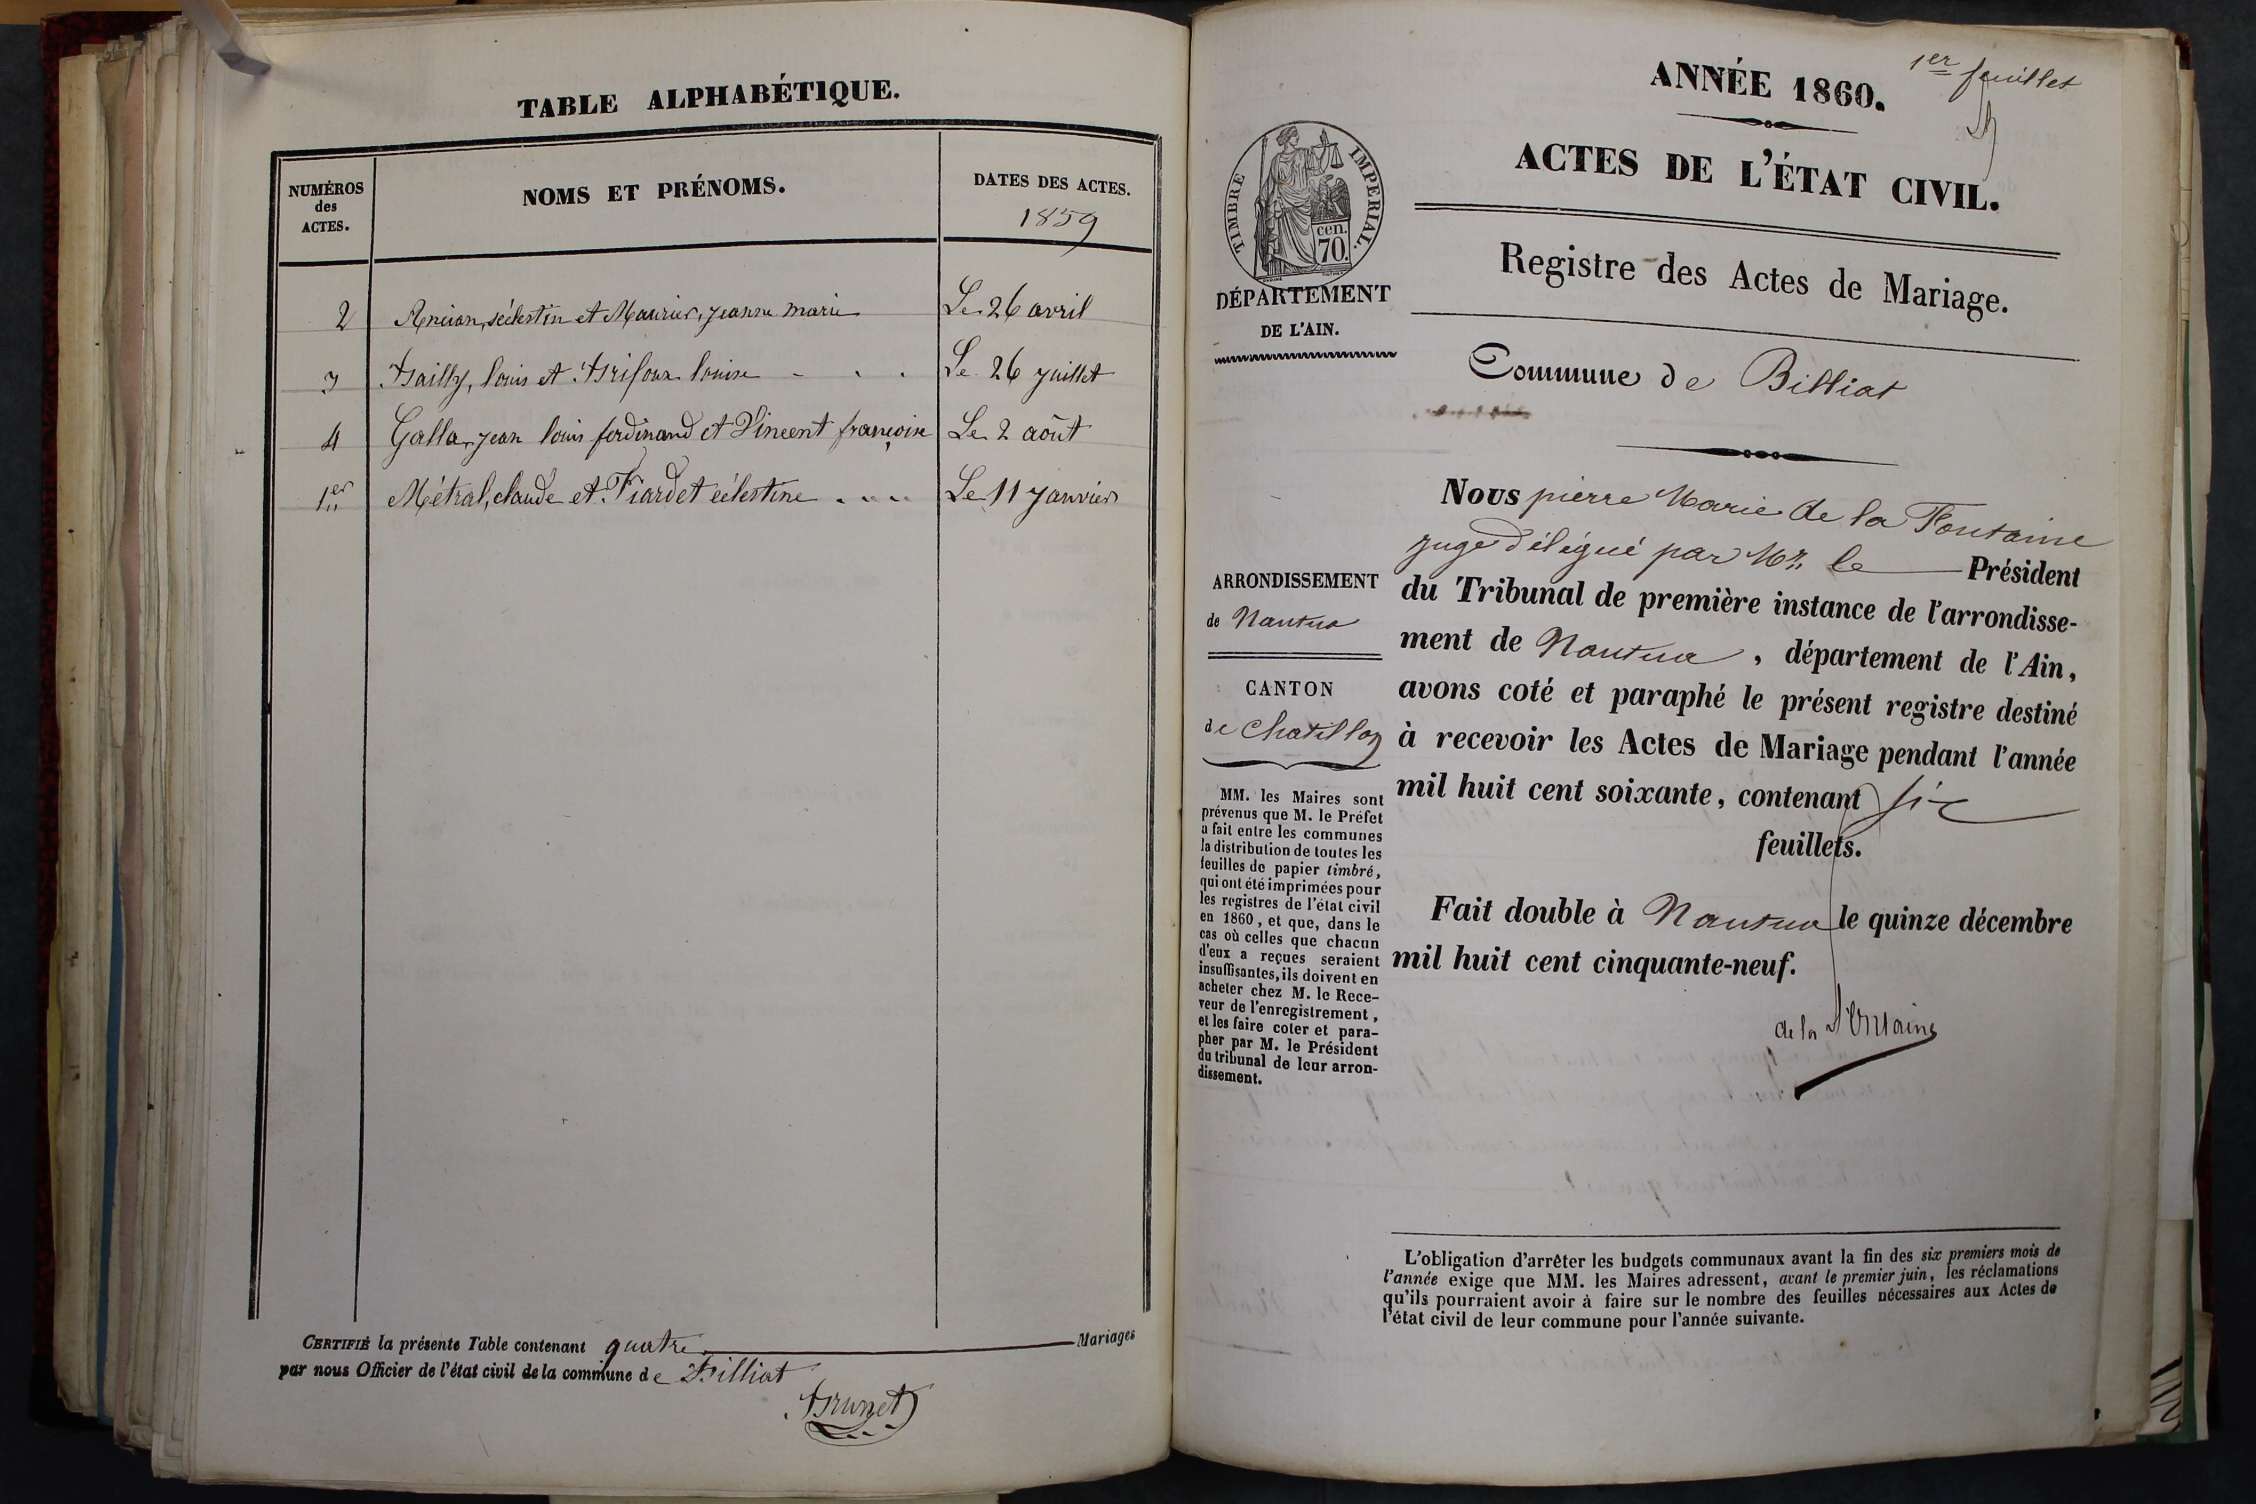 TABLE ALPHABÉTIQUE.
NUMÉROS
des
ACTES.
NOMS ET PRÉNOMS.
DATES DES ACTES.
1859
2 Ancian, sélestin et Maurier, jeanne marie Le 26 avril
3 Bailly, louis et Brifoux louise - . . Le 26 juillet
4 Galla, jean louis ferdinand et Vincent françoise Le 2 août
1er Métral, claude et Fiardet célestine . . . . Le 11 janvier
CERTIFIÉ la présente Table contenant quatre Mariages
par nous Officier de l'état civil de la commune de Billiat
Brunet
1er feuillet
ANNÉE 1860.
ACTES DE L'ÉTAT CIVIL.
TIMBRE IMPERIAL.
cen.
70.
DÉPARTEMENT
DE L'AIN.
Registre des Actes de Mariage.
Commune de Billiat
ARRONDISSEMENT
de Nantua
CANTON
de Chatillon
MM. les Maires sont
prévenus que M. le Préfet
a fait entre les communes
la distribution de toutes les
feuilles de papier timbré,
qui ont été imprimées pour
les registres de l'état civil
en 1860, et que, dans le
cas où celles que chacun
d'eux a reçues seraient
insuffisantes, ils doivent en
acheter chez M. le Rece-
veur de l'enregistrement,
et les faire coter et para-
pher par M. le Président
du tribunal de leur arron-
dissement.
Nous pierre Marie de la Fontaine
juge délégué par Mr. le Président
du Tribunal de première instance de l'arrondisse-
ment de Nantua, département de l'Ain,
avons coté et paraphé le présent registre destiné
à recevoir les Actes de Mariage pendant l'année
mil huit cent soixante, contenant six
feuillets.
Fait double à Nantua le quinze décembre
mil huit cent cinquante-neuf.
de la Fontaine
L'obligation d'arrêter les budgets communaux avant la fin des six premiers mois de
l'année exige que MM. les Maires adressent, avant le premier juin, les réclamations
qu'ils pourraient avoir à faire sur le nombre des feuilles nécessaires aux Actes de
l'état civil de leur commune pour l'année suivante.